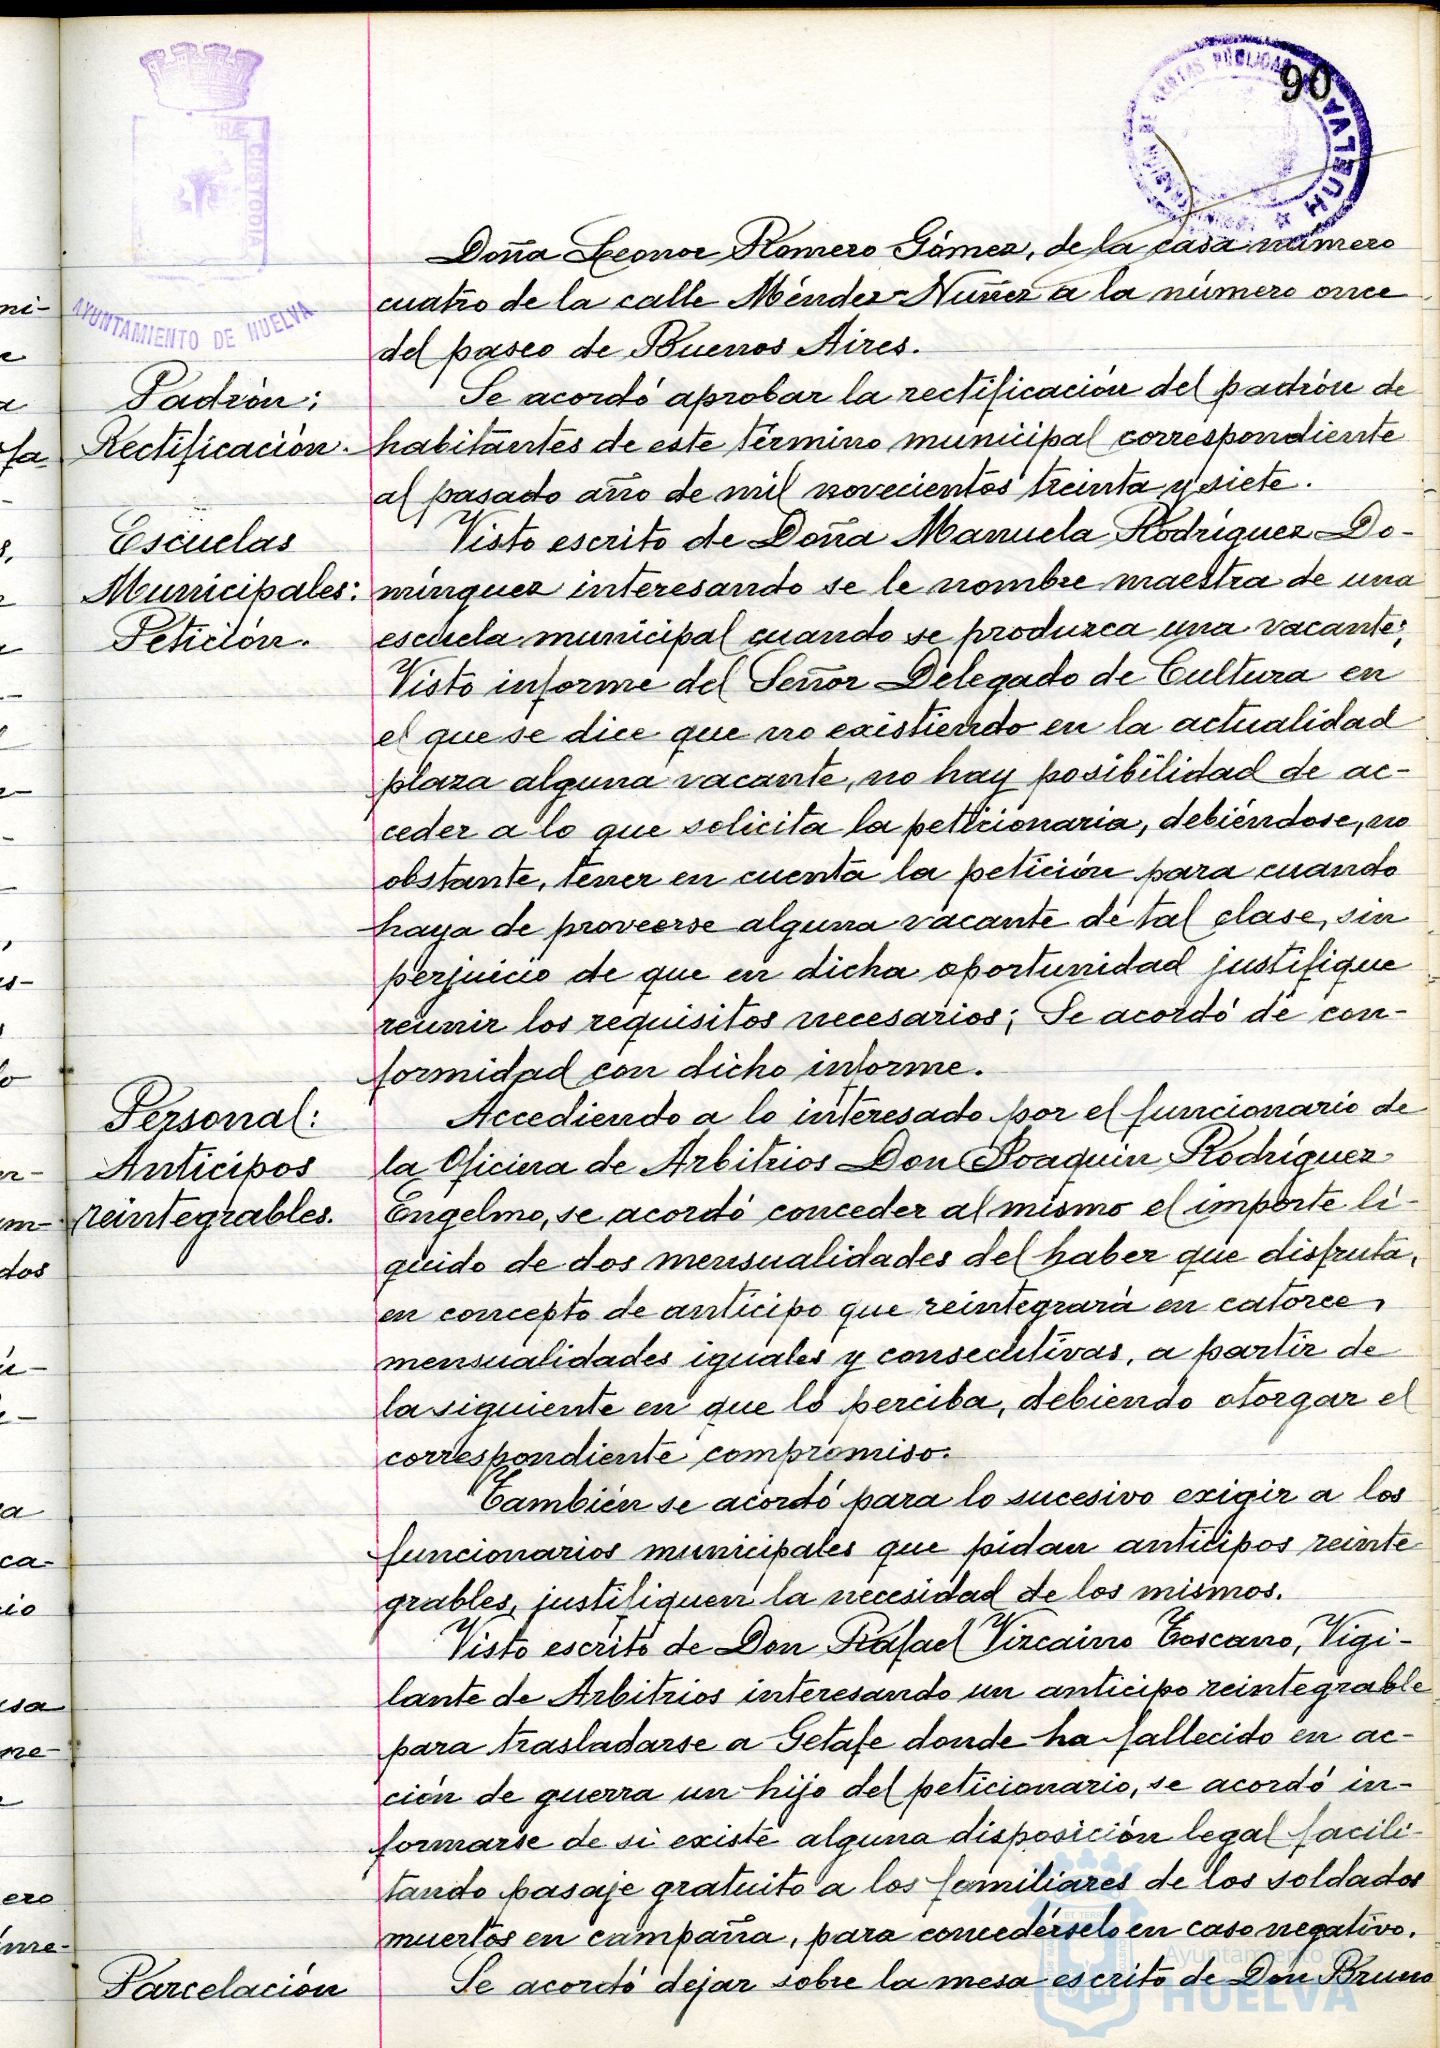 90
ADMINISTRACIÓN DE RENTAS PÚBLICAS
HUELVA
CUSTODIA
AYUNTAMIENTO DE HUELVA
Doña Leonor Romero Gómez, de la casa número
cuatro de la calle Méndez-Nuñez a la número once
del paseo de Buenos Aires.
Padrón;
Rectificación.
Se acordó aprobar la rectificación del padrón de
habitantes de este término municipal correspondiente
al pasado año de mil novecientos treinta y siete.
Escuelas
Municipales:
Petición.
Visto escrito de Doña Manuela Rodríguez Do-
minguez interesando se le nombre maestra de una
escuela municipal cuando se produzca una vacante;
Visto informe del Señor Delegado de Cultura en
el que se dice que no existiendo en la actualidad
plaza alguna vacante, no hay posibilidad de ac-
ceder a lo que solicita la peticionaria, debiéndose, no
obstante, tener en cuenta la petición para cuando
haya de proveerse alguna vacante de tal clase, sin
perjuicio de que en dicha oportunidad justifique
reunir los requisitos necesarios; Se acordó de con-
formidad con dicho informe.
Personal:
Anticipos
reintegrables.
Accediendo a lo interesado por el funcionario de
la Oficina de Arbitrios Don Joaquin Rodríguez
Engelmo, se acordó conceder al mismo el importe lí-
quido de dos mensualidades del haber que disfruta,
en concepto de anticipo que reintegrará en catorce
mensualidades iguales y consecutivas, a partir de
la siguiente en que lo perciba, debiendo otorgar el
correspondiente compromiso.
También se acordó para lo sucesivo exigir a los
funcionarios municipales que pidan anticipos reinte
grables, justifiquen la necesidad de los mismos.
Visto escrito de Don Rafael Vizcaino Toscano, Vigi-
lante de Arbitrios interesando un anticipo reintegrable
para trasladarse a Getafe donde ha fallecido en ac-
ción de guerra un hijo del peticionario, se acordó in-
formarse de si existe alguna disposición legal facili-
tando pasaje gratuito a los familiares de los soldados
muertos en campaña, para concedérselo en caso negativo.
Parcelación
Se acordó dejar sobre la mesa escrito de Don Bruno
Ayuntamiento de
HUELVA